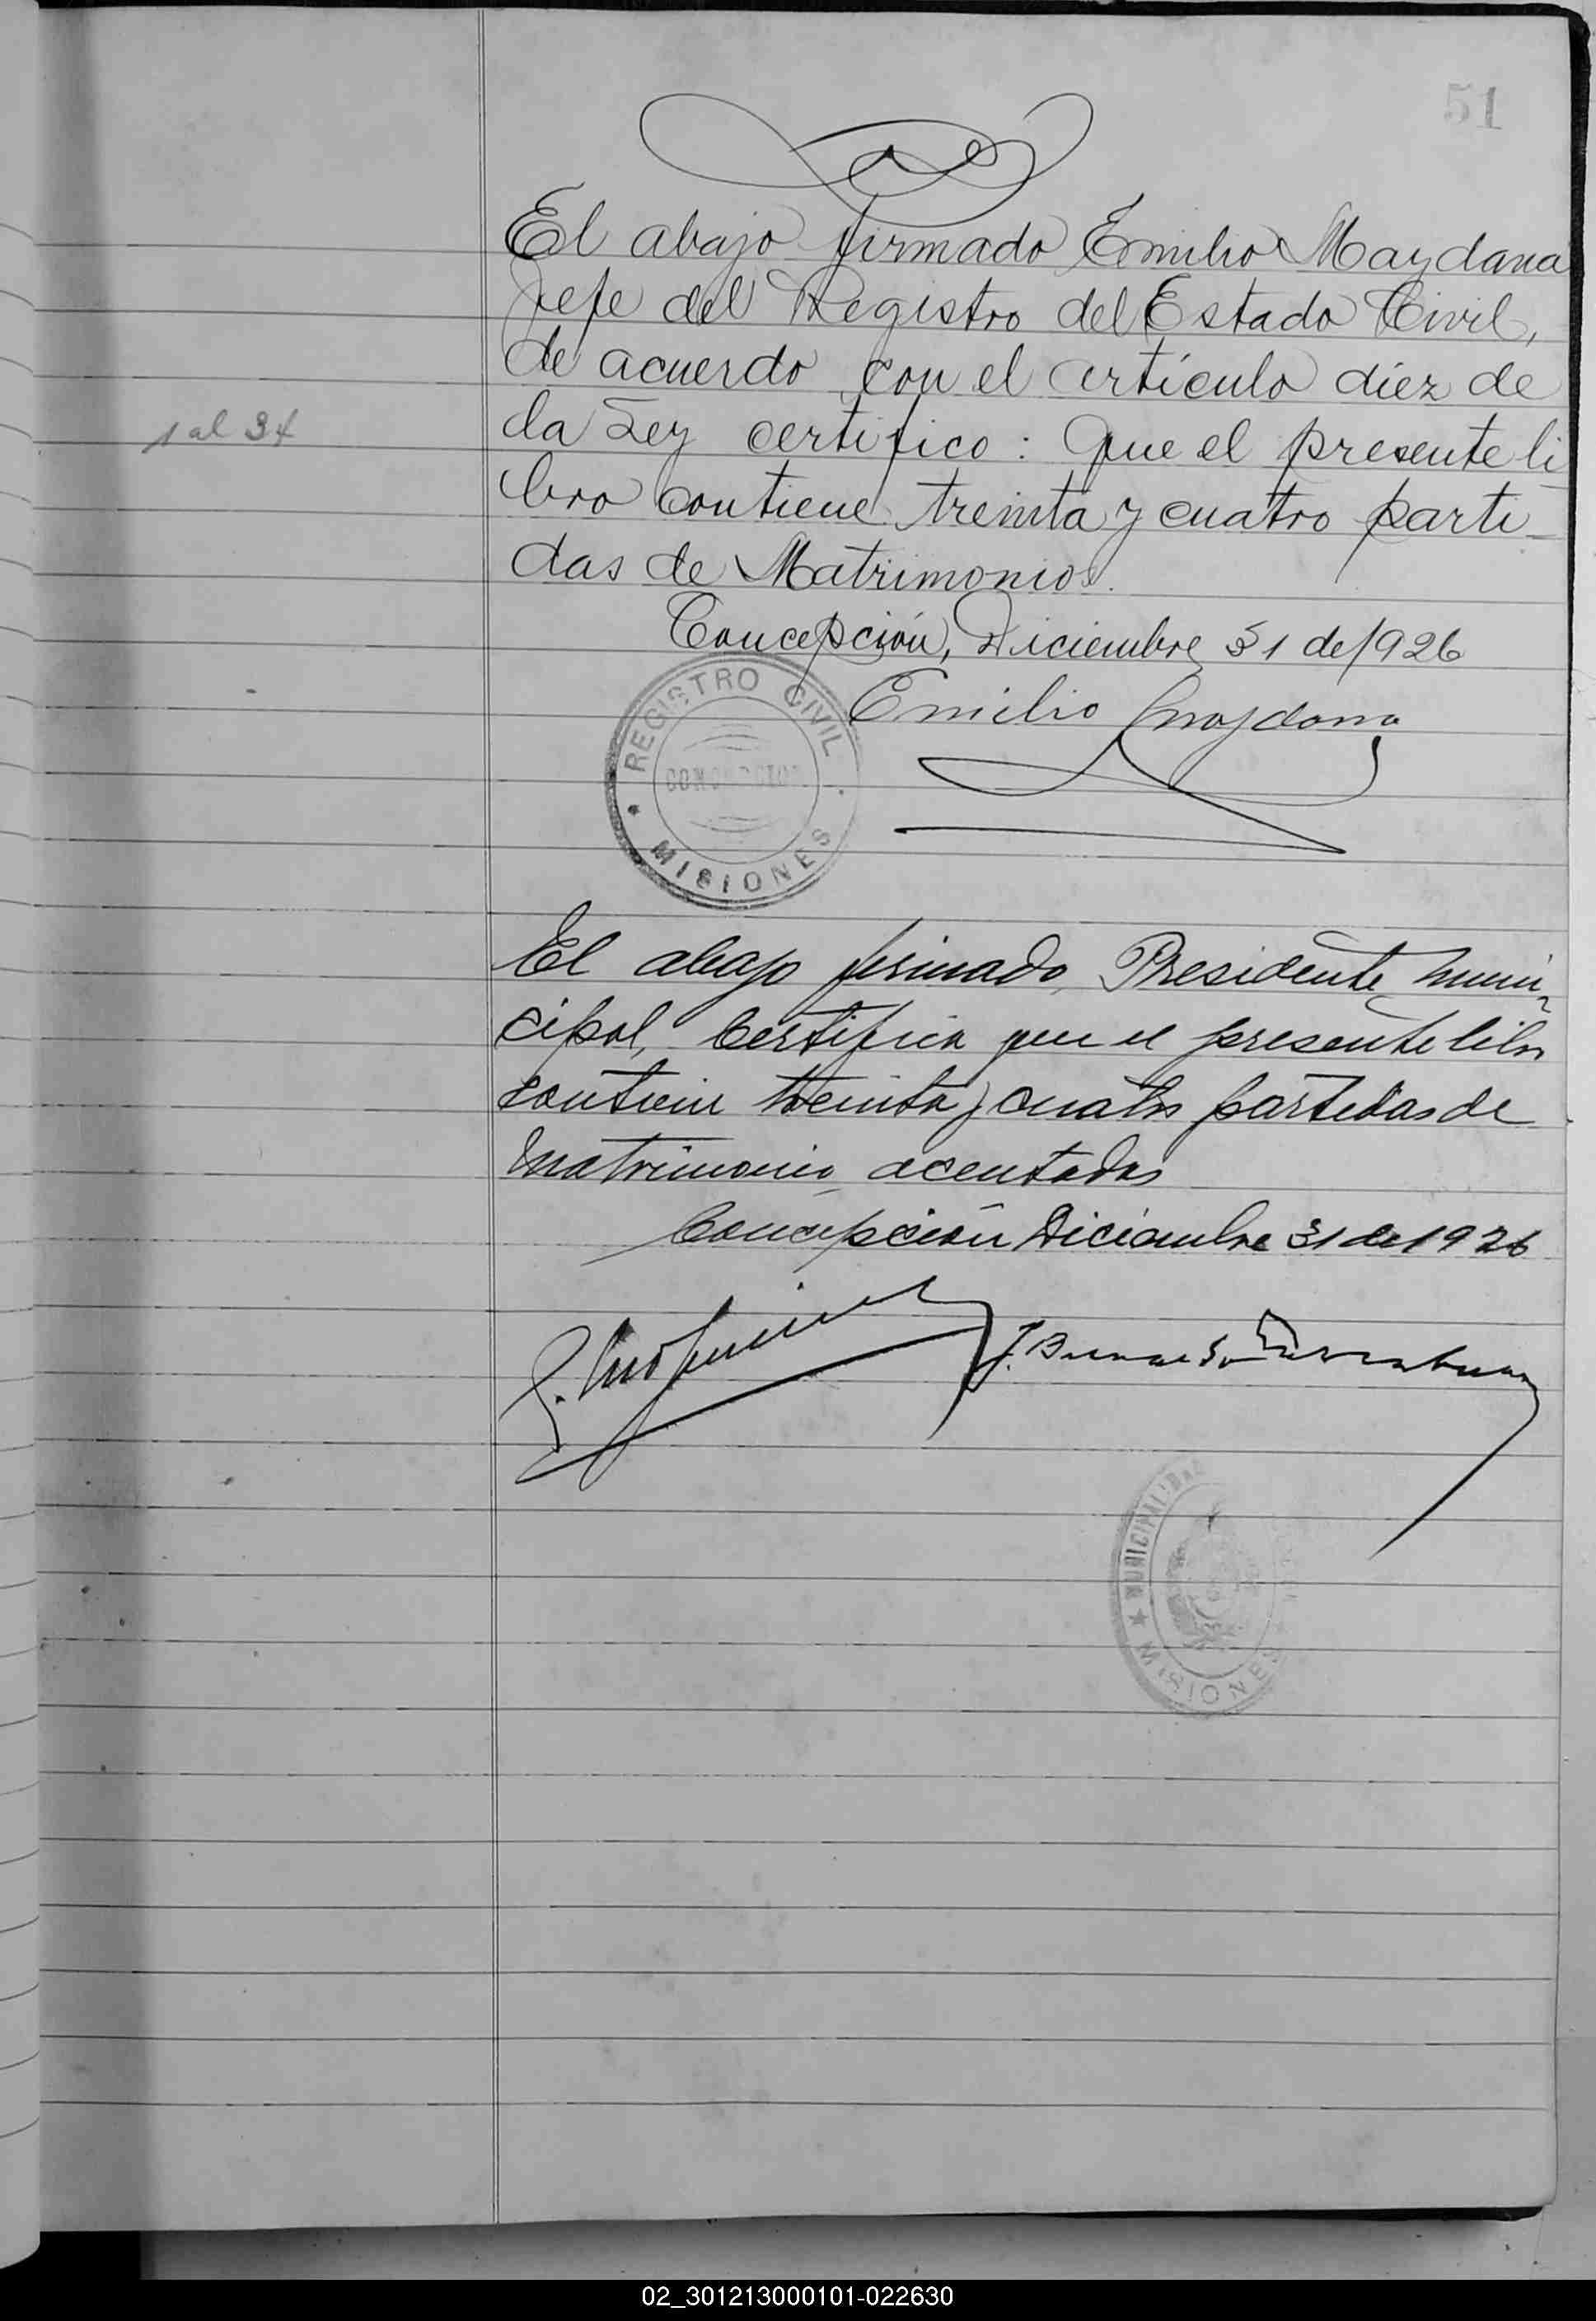 51
El abajo firmado Emilio Maydana
Jefe del Registro del Estado Civil,
de acuerdo con el artículo diez de
la Ley certifico: Que el presente li
1 al 34
bro contiene treinta y cuatro parti_
das de Matrimonios.
Concepción, Diciembre 31 de 1926
Emilio Maydana
REGISTRO CIVIL
CONCEPCION
MISIONES
El abajo firmado, Presidente muni_
cipal, Certifica que el presente libro
contiene treinta y cuatro partidas de
Matrimonio acentadas
Concepción Diciembre 31 de 1926
MUNICIPALIDAD
MISIONES
02_301213000101-022630